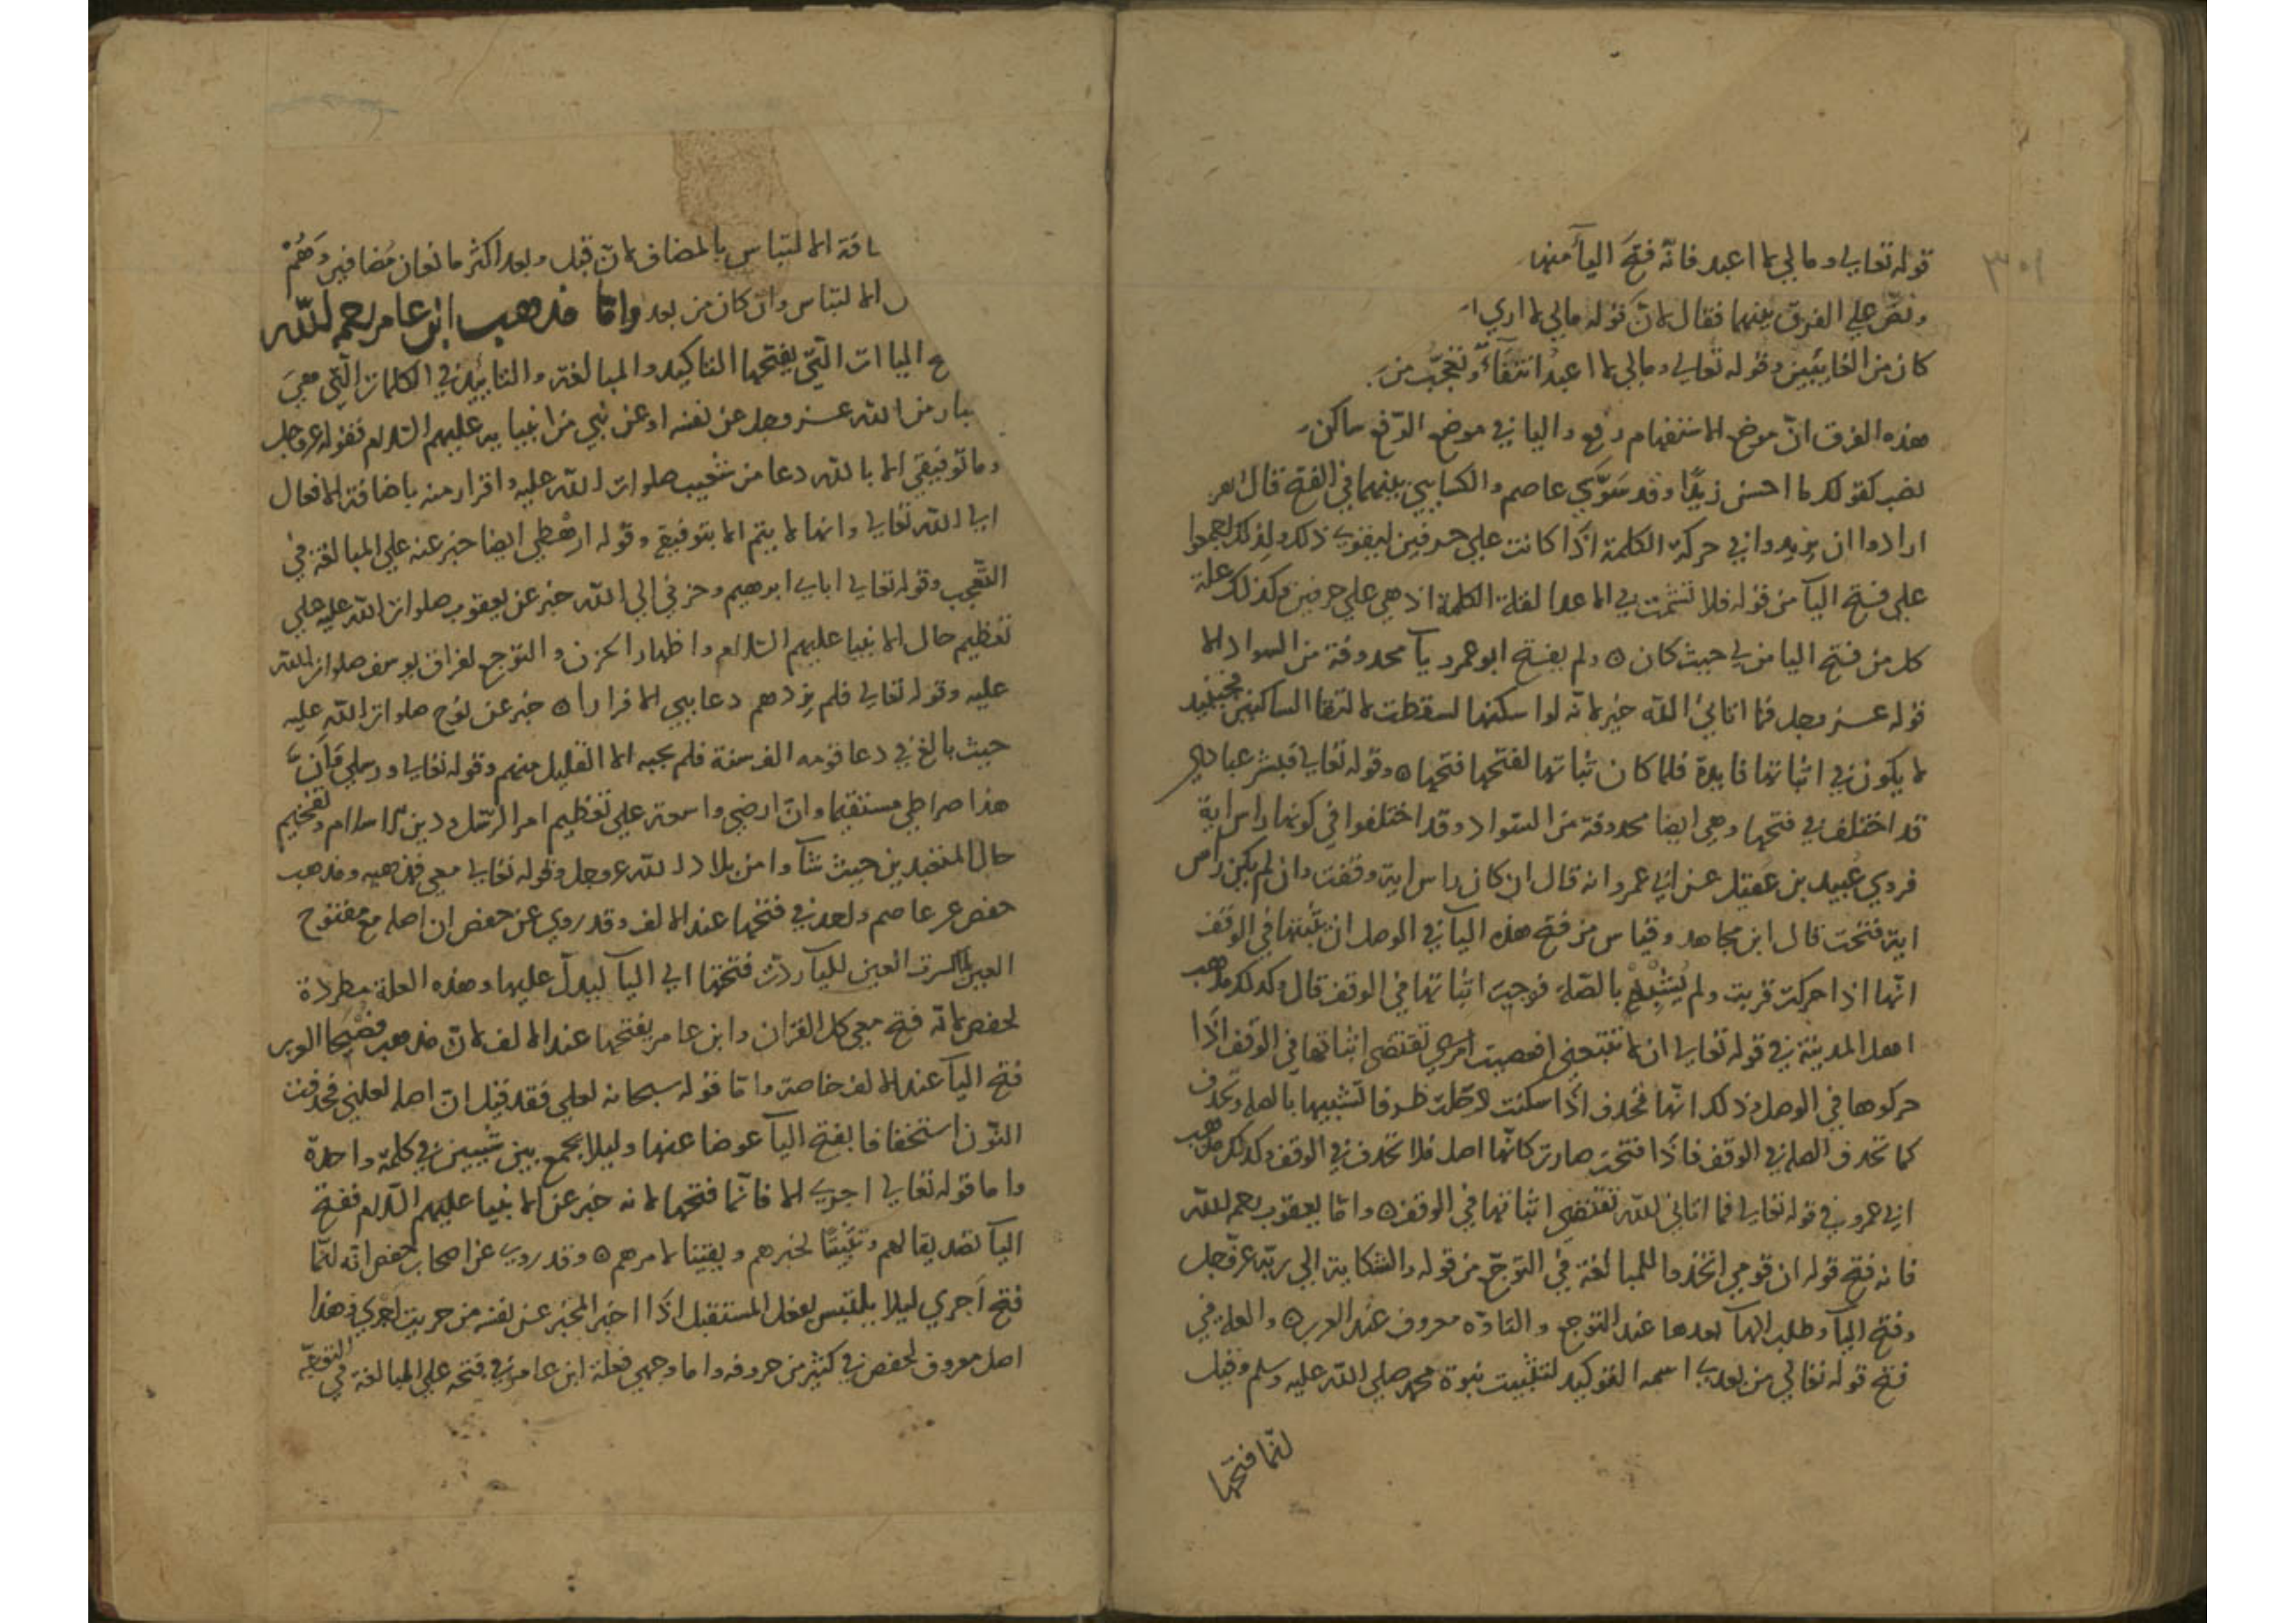 ٣٠١
قوله تعالى ومالي لا اعبد فانه فتح اليآ منها
ونص على الفرق بينهما فقال لان قوله مالي لا ارى ا
كان من الغايبين وقوله تعالى ومالي لا اعبد انتفآء وتعجب من
هذه الفرق ان موضع الاستفهام رفع واليا في موضع الرفع ساكن
نصب كقولك ما احسن زيدًا وقد سوّى عاصم والكسايي بينهما في الفتح قال
ارادوا ان يزيدوا في حركة الكلمة اذا كانت على حرفين ليقوى ذلك ولذلك اجمعوا
على فتح اليآ من قوله فلا تشمت بي الاعدا لقلة الكلمة اذ هي على حرفين وكذلك علة
كل من فتح اليا من لي حيث كان ٥ ولم يفتح ابو عمرو يآ محذوفة من السواد الا
قوله عز وجل فما اتاني الله خير لانه لو اسكنها لسقطت لالتقا الساكنين فحينيد
لا يكون في اثباتها فايدة فلما كان ثباتها لفتحها فتحها ٥ وقوله تعالى فبشر عبادي
قد اختلف في فتحها وهي ايضا محذوفة من السواد وقد اختلفوا في كونها راس اية
فروى عبيد بن عقيل عن ابي عمرو انه قال ان كان راس اية وقفت وان لم يكن راس
اية فتحت قال ابن مجاهد وقياس من فتح هذه اليآ في الوصل ان يثبتها في الوقف
انها اذا حركت قربت ولم يشبه بالصلة فوجبت اثباتها في الوقف قال وكذلك مذهب
اهل المدينة في قوله تعالى ان لا تتبعني افعصيت امري تقتضي اثباتها في الوقف اذا
حركوها في الوصل وذلك انها تحذف اذا سكنت لتشبيهها بالصلة وتحذف
كما تحذف الصلة في الوقف فاذا فتحت صارت كانها اصل فلا تحذف في الوقف وكذلك مذهب
ابي عمرو في قوله تعالى فما اتاني الله تقتضي اثباتها في الوقف ٥ واما يعقوب رحمه الله
فانه فتح قوله ان قومي اتخذوا للمبالغة في التوجع من قوله والشكاية الى ربه عز وجل
وفتح اليآ وطلب الهآ بعدها عند التوجع والتاوه معروف عند العرب ٥ والعلة في
فتح قوله تعالى من بعدي اسمه التوكيد لتثبيت نبوة محمد صلى الله عليه وسلم وقيل
لما فتحها
افة الالتباس بالمضاف لان قبل وبعد اكثر ما تعان مضافين وهم
الالتباس وان كان من بعد واما مذهب ابن عامر رحمه الله
الياات التي يفتحها التاكيد والمبالغة والتاييد في الكلمات التي هي
بار من الله عز وجل عن نفسه او عن نبي من انبيايه عليهم السلام فقوله عز وجل
وما توفيقي الا بالله دعا من شعيب صلوات الله عليه واقرار منه باضافة الافعال
الى الله تعالى وانها لا يتم الا بتوفيقه وقوله ارهطي ايضا خبر عنه على المبالغة في
التعجب وقوله تعالى اباي ابرهيم وحزني الى الله خبر عن يعقوب صلوات الله عليه على
تعظيم حال الانبيا عليهم السلام واظهار الحزن والتوجع لفراق يوسف صلوات الله
عليه وقوله تعالى فلم يزدهم دعايي الا فرارا ٥ خبر عن نوح صلوات الله عليه
حيث بالغ في دعا قومه الف سنة فلم يجبه الا القليل منهم وقوله تعالى ورسلي وان
هذا صراطي مستقيما وان ارضي واسعة على تعظيم امر الرسل ودين الاسلام وتفخيم
حال المتعبدين حيث شآوا من بلاد الله عز وجل وقوله تعالى معي ومذهب
حفص عن عاصم ولعد في فتحها عند الالف وقد روي عن حفص ان اصله مع مفتوح
العين لما كسرت العين لليآ ردت فتحتها الى اليآ ليدل عليها وهذه العلة مطردة
لحفص لانه فتح معي كل القران وابن عامر يفتحها عند الالف لان مذهب
فتح اليآ عند الالف خاصة واما قوله سبحانه لعلي فقد قيل ان اصله لعلني فحذفت
النون استخفافا بفتح اليآ عوضا عنها وليلا يجمع بين شيين في كلمة واحدة
واما قوله تعالى اجري الا فانما فتحها لانه خبر عن الانبيا عليهم السلام ففتح
اليآ تصديقا لهم وتثبيتًا لخبرهم ويقينا لامرهم ٥ وقد روي عن اصحاب حفص انه لما
فتح اجري ليلا يلتبس بفعل المستقبل اذا اخبر المخبر عن نفسه من جريت اجري وهذا
اصل معروف لحفص في كثير من حروفه واما وجهي فعلة ابن عامر في فتحه على المبالغة في التوجه